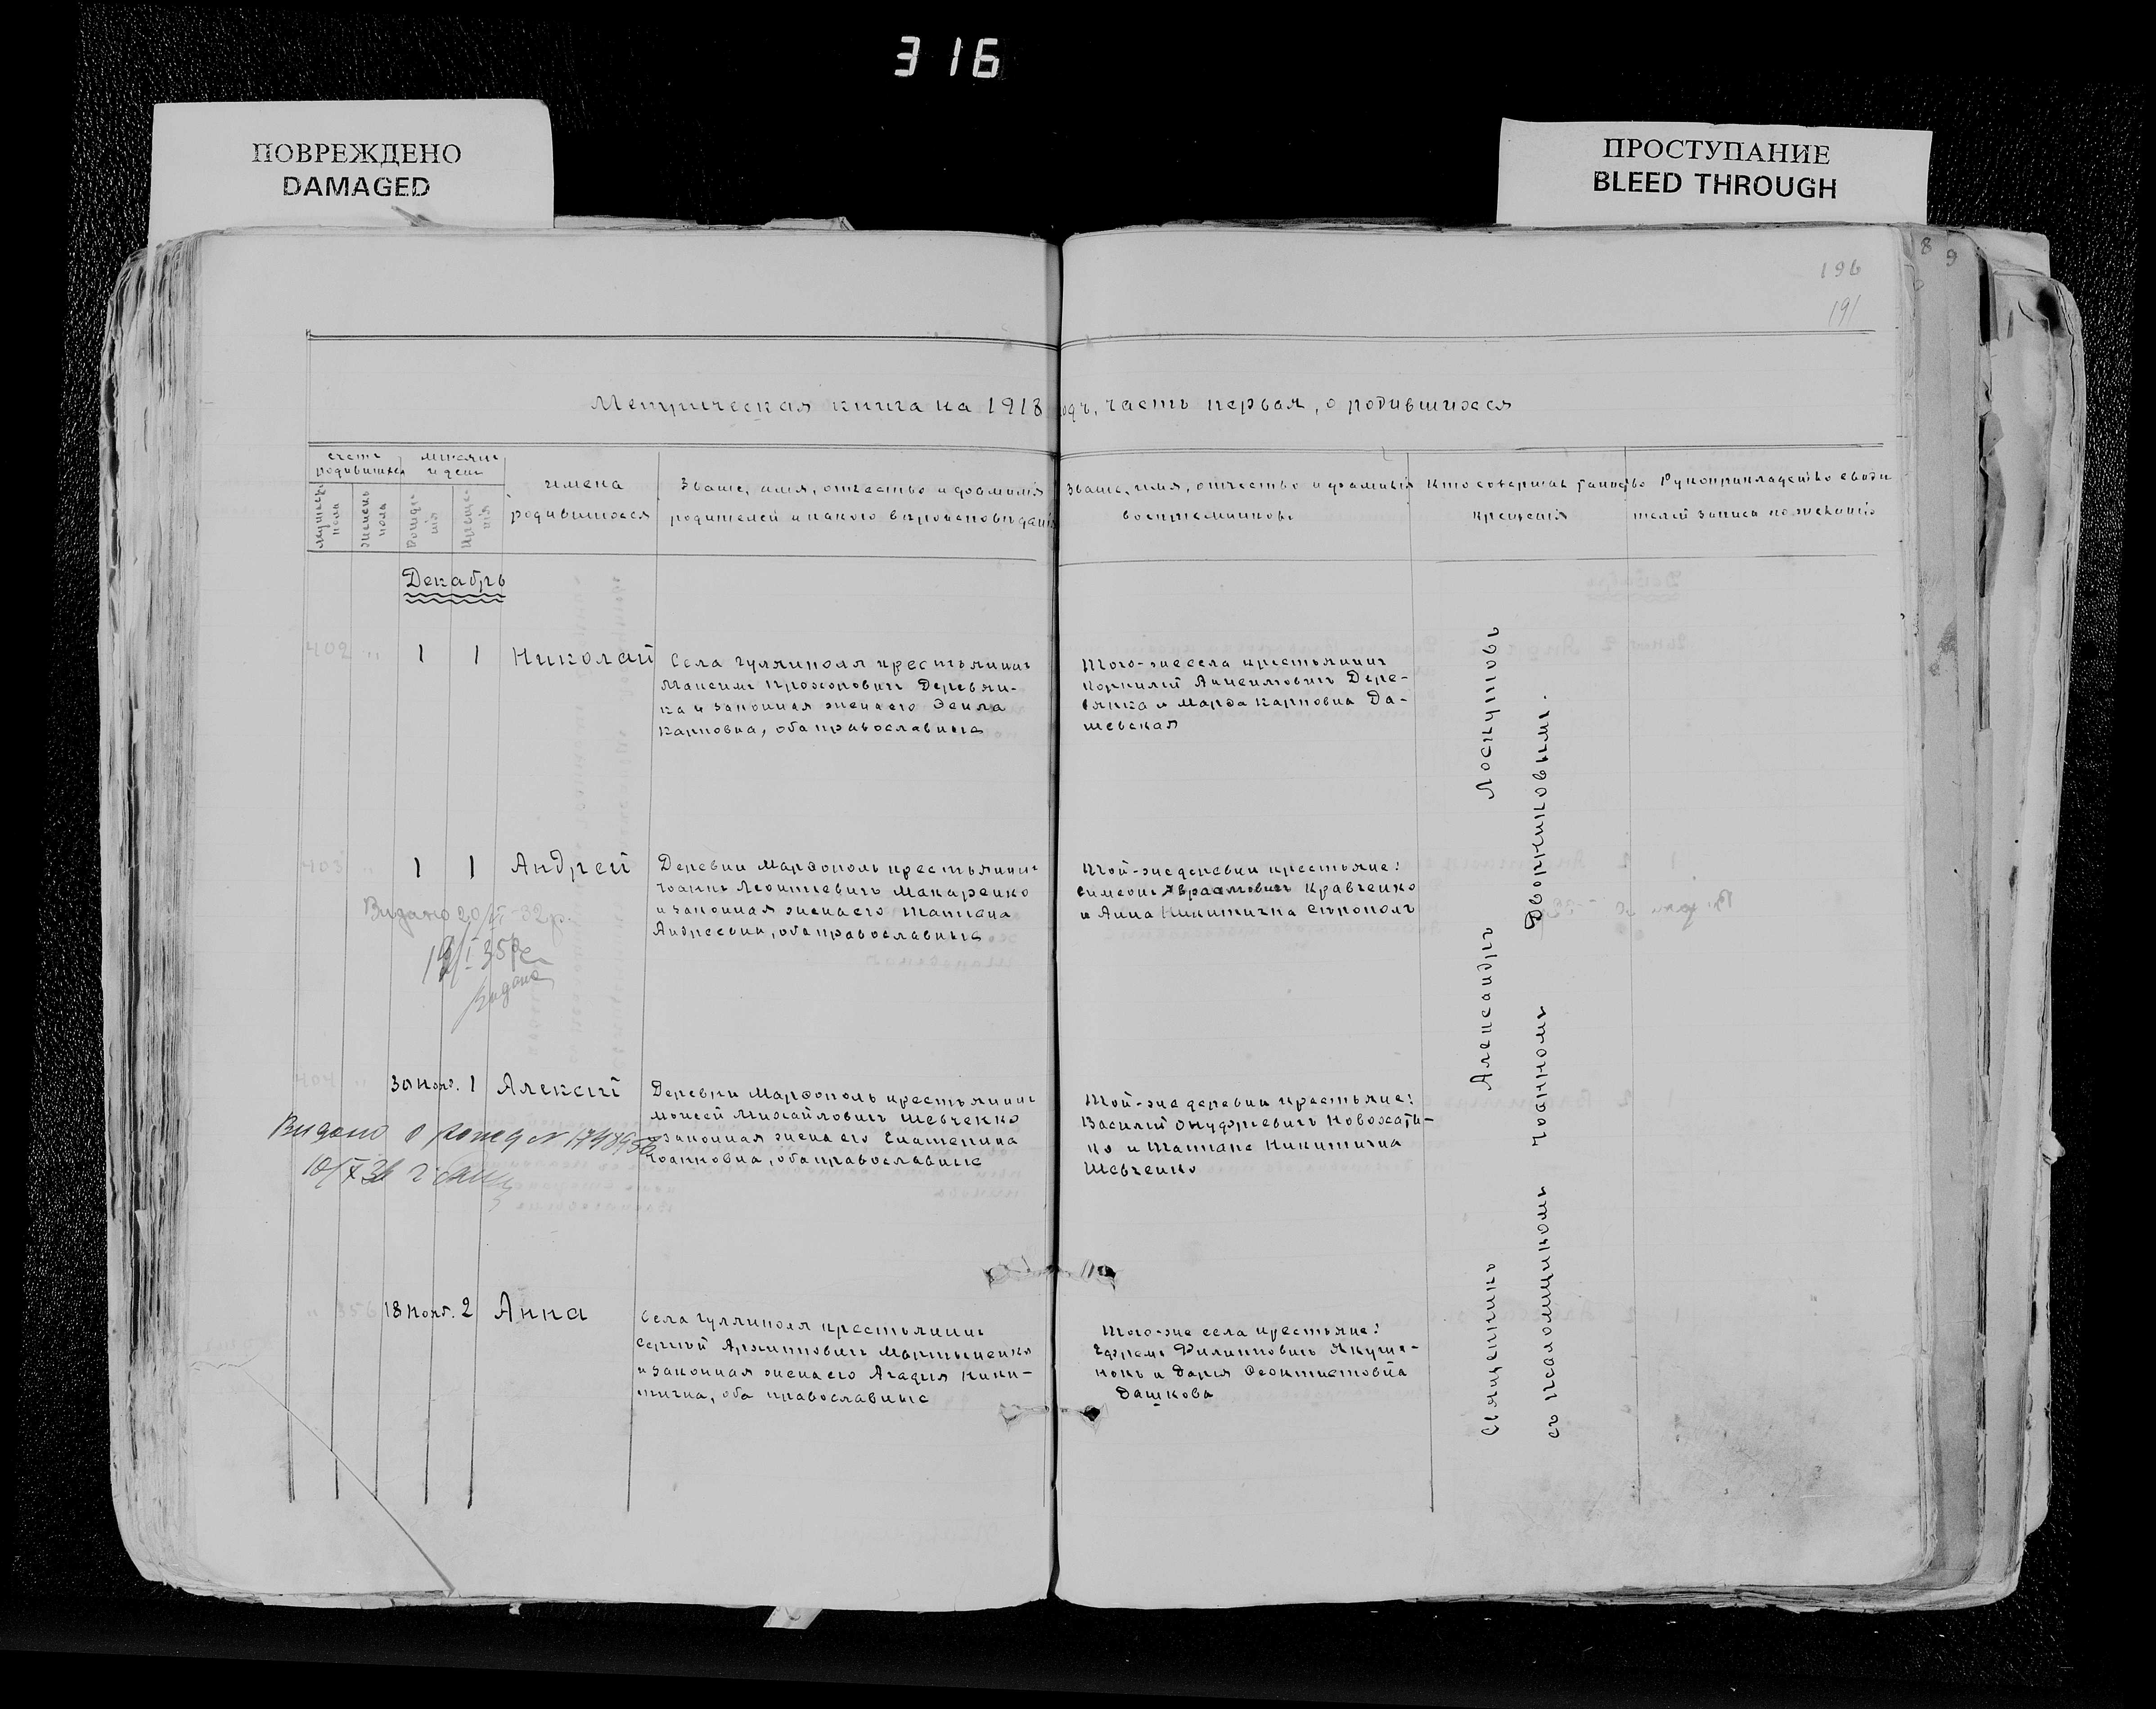 316
ПОВРЕЖДЕНО
DAMAGED
ПРОСТУПАНИЕ
BLEED THROUGH
89
196
191
Метрическая книга на 1918 годъ, часть первая, о родившихся
счетъ родившихся
мужеск. пола
женск. пола
мѣсяцъ и день
рожде-нія
креще-нія
имена
родившихся
Званіе, имя, отчество и фамилія
родителей и какого вѣроисповѣданія
Званіе, имя, отчество и фамилія
воспріемниковъ
Кто совершалъ таинство
крещенія
Рукоприкладство свидѣ
телей записи по желанію
Декабрь
402 " 1 1 Николай
Села Гуляйполя крестьянинъ
Максимъ Прохоровичъ Деревян-
ка и законная жена его Текла
Карповна, оба православные
Того-же села крестьянинъ
Корнилій Анисимовичъ Дере-
вянка и Марѳа Карповна Да-
шевская
403 " 1 1 Андрей
Деревни Марфополь крестьянинъ
Іоаннъ Леонтіевичъ Макаренко
и законная жена его Татіана
Андреевна, оба православные
Той-же деревни крестьяне:
Симеонъ Авраамовичъ Кравченко
и Анна Никитична Сѣрополъ
Видано 20/II-32р.
19/I 35р
Видано
404 " 30 Нояб. 1 Алексѣй
Деревни Марфополь крестьянинъ
Моисей Михайловичъ Шевченко
и законная жена его Екатерина
Іоанновна, оба православные
Той-же деревни крестьяне:
Василій Онуфріевичъ Новохать-
ко и Татіана Никитична
Шевченко
Видано
" 356 18 Нояб. 2 Анна
Села Гуляйполя крестьянинъ
Сергій Архиповичъ Мартыненко
и законная жена его Агафія Ники-
тична, оба православные
Того-же села крестьяне:
Ефремъ Филипповичъ Якуше-
нокъ и Дарія Ѳеоктистовна
Дашкова
Священникъ Александръ Лоскутовъ
съ псаломщикомъ Іоанномъ Дворниковымъ.